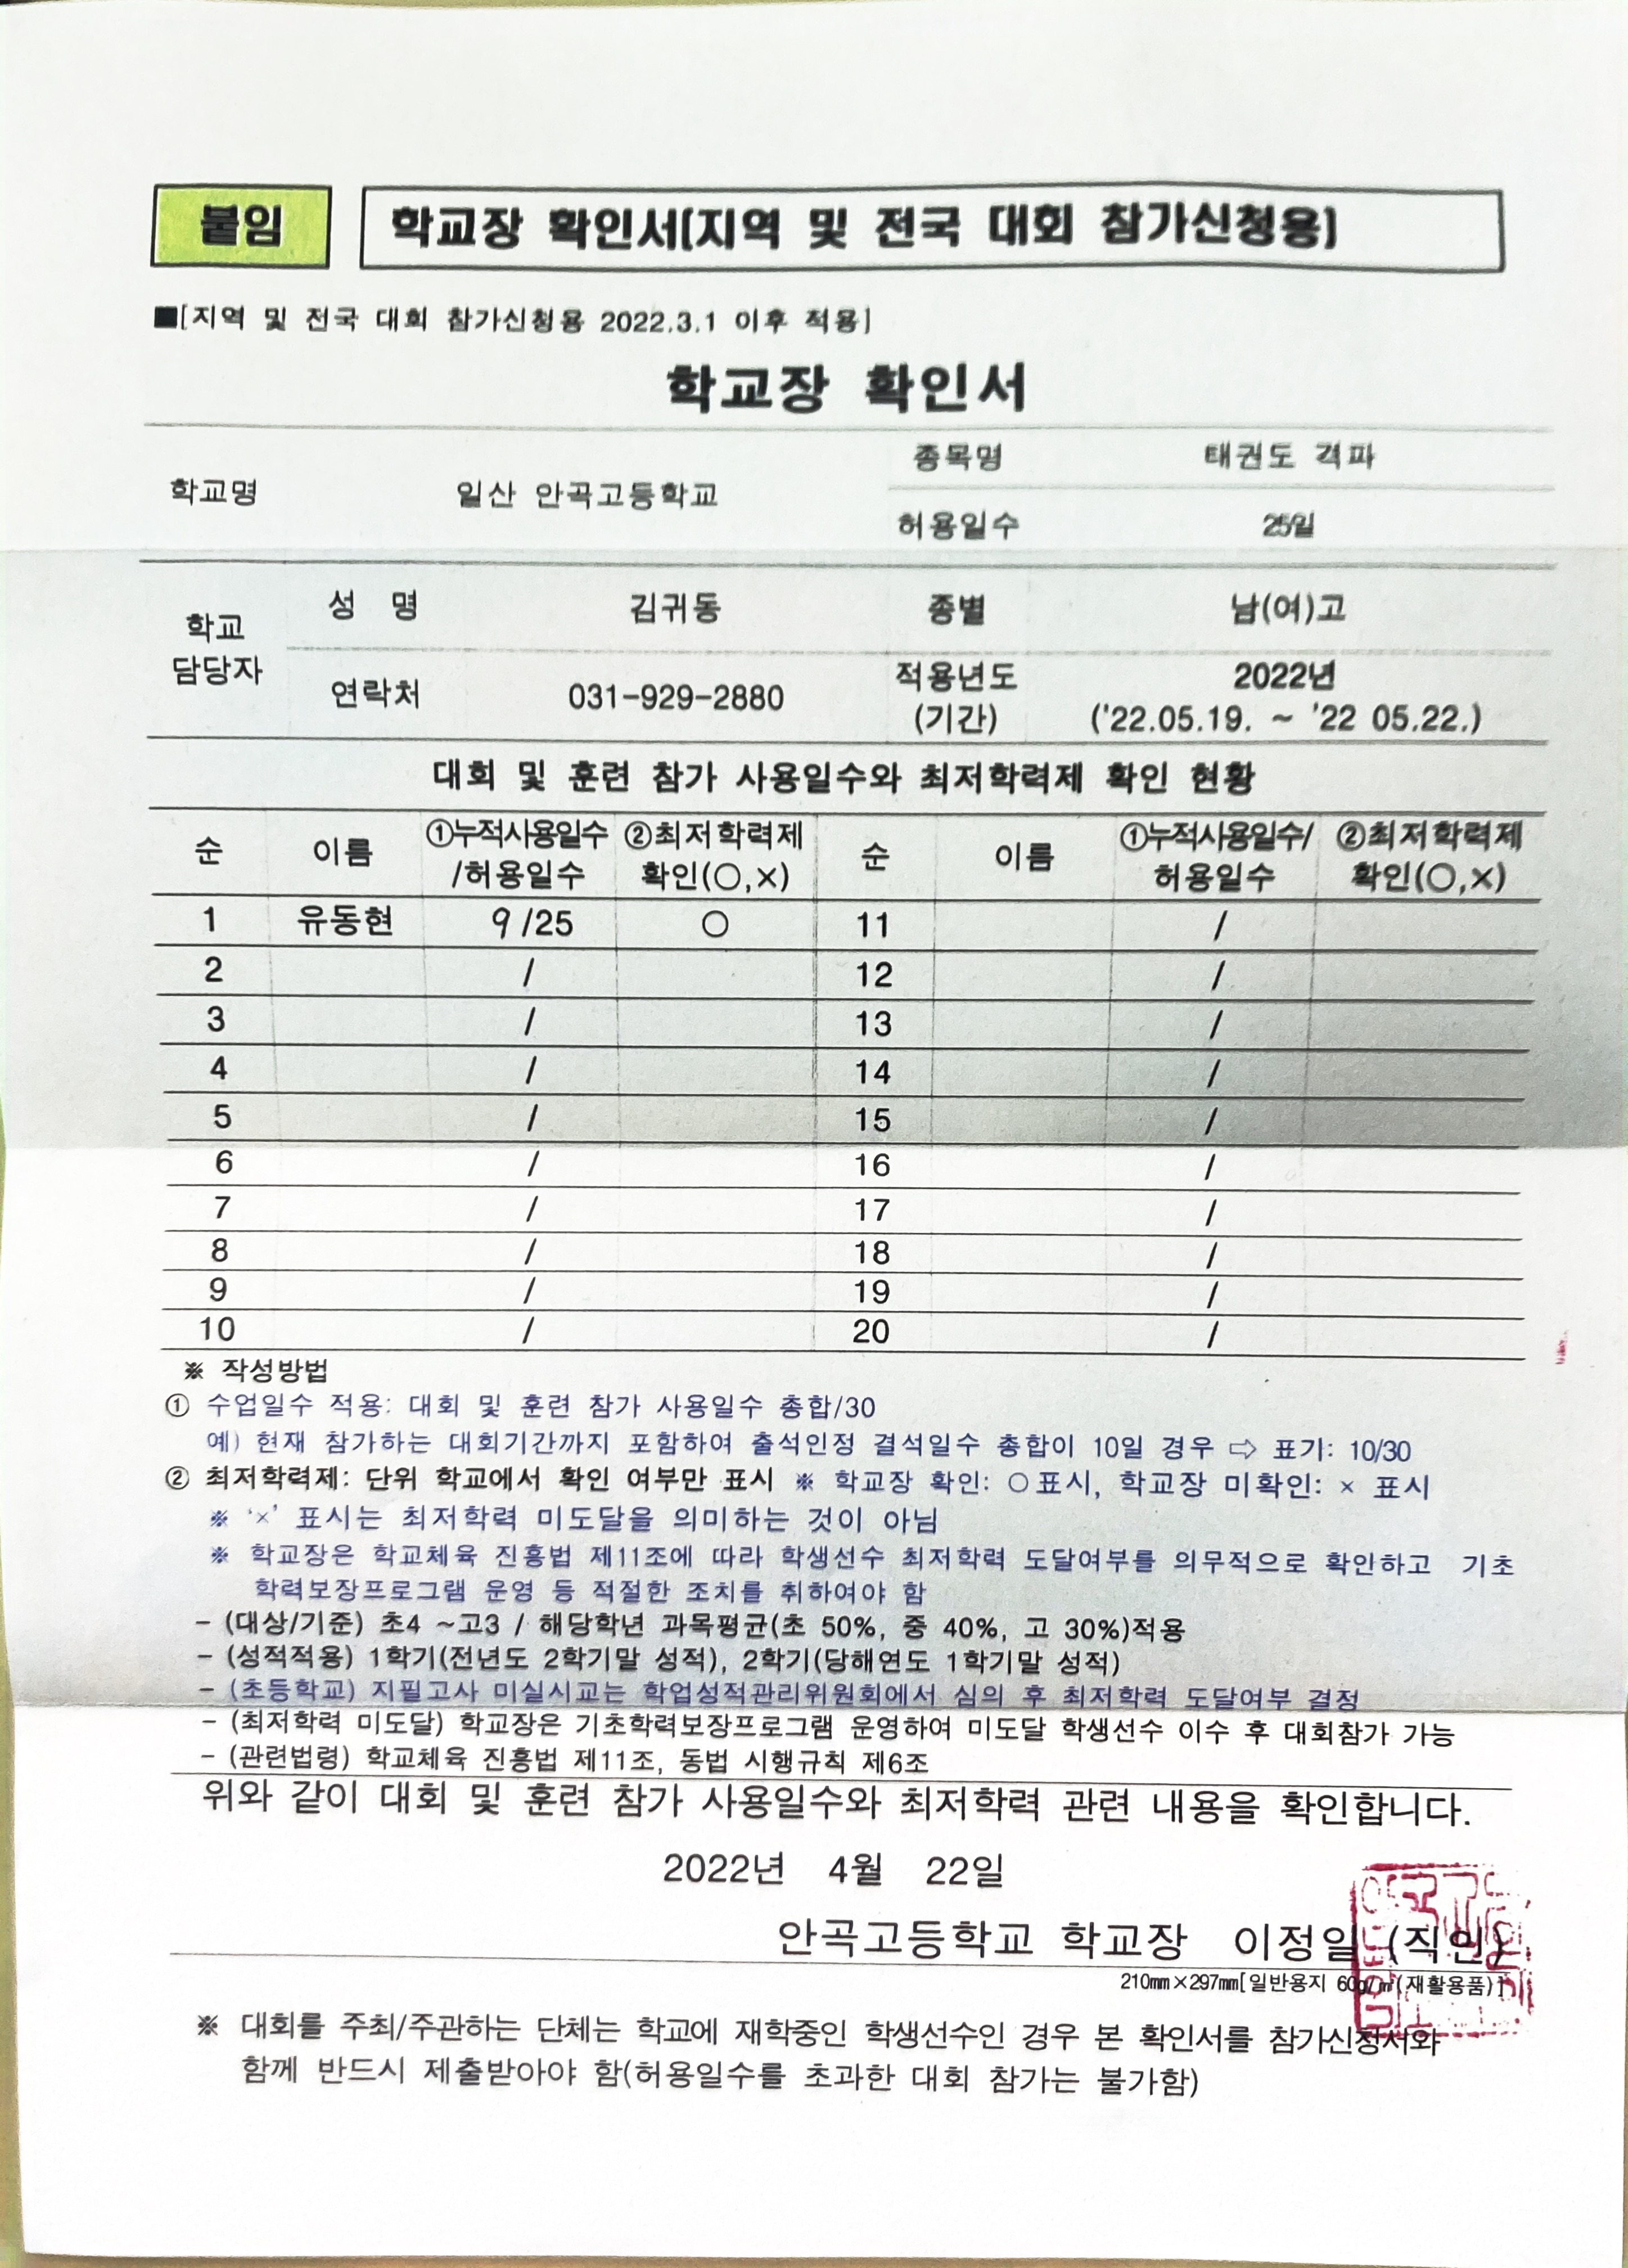 붙임 학교장 확인서[지역 및 전국 대회 참가신청용]
■[지역 및 전국 대회 참가신청용 2022.3.1 이후 적용]
학교장 확인서
학교명 일산 안곡고등학교 종목명 태권도 격파
허용일수 25일
학교 담당자 성 명 김귀동 종별 남(여)고
연락처 031-929-2880 적용년도 (기간) 2022년 ('22.05.19. ~ '22 05.22.)
대회 및 훈련 참가 사용일수와 최저학력제 확인 현황
순 이름 ①누적사용일수 ②최저학력제 순 이름 ①누적사용일수/ ②최저학력제
/허용일수 확인(○,×) 허용일수 확인(○,×)
1 유동현 9/25 ○ 11 /
2 / 12 /
3 / 13 /
4 / 14 /
5 / 15 /
6 / 16 /
7 / 17 /
8 / 18 /
9 / 19 /
10 / 20 /
※ 작성방법
① 수업일수 적용: 대회 및 훈련 참가 사용일수 총합/30
예) 현재 참가하는 대회기간까지 포함하여 출석인정 결석일수 총합이 10일 경우 ⇨ 표기: 10/30
② 최저학력제: 단위 학교에서 확인 여부만 표시 ※ 학교장 확인: ○표시, 학교장 미확인: × 표시
※ '×' 표시는 최저학력 미도달을 의미하는 것이 아님
※ 학교장은 학교체육 진흥법 제11조에 따라 학생선수 최저학력 도달여부를 의무적으로 확인하고 기초
학력보장프로그램 운영 등 적절한 조치를 취하여야 함
- (대상/기준) 초4 ~고3 / 해당학년 과목평균(초 50%, 중 40%, 고 30%)적용
- (성적적용) 1학기(전년도 2학기말 성적), 2학기(당해연도 1학기말 성적)
- (초등학교) 지필고사 미실시교는 학업성적관리위원회에서 심의 후 최저학력 도달여부 결정
- (최저학력 미도달) 학교장은 기초학력보장프로그램 운영하여 미도달 학생선수 이수 후 대회참가 가능
- (관련법령) 학교체육 진흥법 제11조, 동법 시행규칙 제6조
위와 같이 대회 및 훈련 참가 사용일수와 최저학력 관련 내용을 확인합니다.
2022년 4월 22일
안곡고등학교 학교장 이정일 (직인)
210㎜×297㎜[일반용지 60g/㎡(재활용품)]
※ 대회를 주최/주관하는 단체는 학교에 재학중인 학생선수인 경우 본 확인서를 참가신청서와
함께 반드시 제출받아야 함(허용일수를 초과한 대회 참가는 불가함)